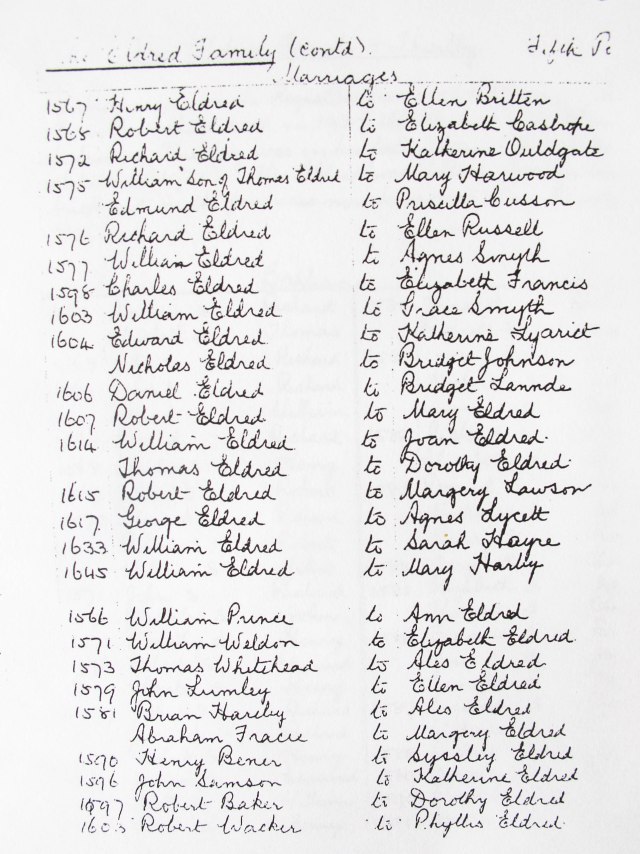 The Eldred Family (contd).
Marriages
1567 Henry Eldred to Ellen Britten
1568 Robert Eldred to Elizabeth Castrope
1572 Richard Eldred to Katherine Ouldgate
1575 William son of Thomas Eldred to Mary Harwood
Edmund Eldred to Priscilla Cusson
1576 Richard Eldred to Ellen Russell
1577 William Eldred to Agnes Smyth
1598 Charles Eldred to Elizabeth Francis
1603 William Eldred to Grace Smyth
1604 Edward Eldred to Katherine
Nicholas Eldred to Bridget Johnson
1606 Daniel Eldred to Bridget Lannde
1607 Robert Eldred to Mary Eldred
1614 William Eldred to Joan Eldred.
Thomas Eldred to Dorothy Eldred.
1615 Robert Eldred to Margery Lawson
1617 George Eldred to Agnes Lycett
1633 William Eldred to Sarah Hayre
1645 William Eldred to Mary Harby
1566 William Prince to Ann Eldred
1571 William Weldon to Elizabeth Eldred
1573 Thomas Whitehead to Ales Eldred
1579 John Lumley to Ellen Eldred
1581 Brian Hareby to Ales Eldred
Abraham Tracie to Margery Eldred
1590 Henry Bener to Syssley Eldred
1596 John Samson to Katherine Eldred
1597 Robert Baker to Dorothy Eldred
Robert Wacker to Phyllis Eldred.